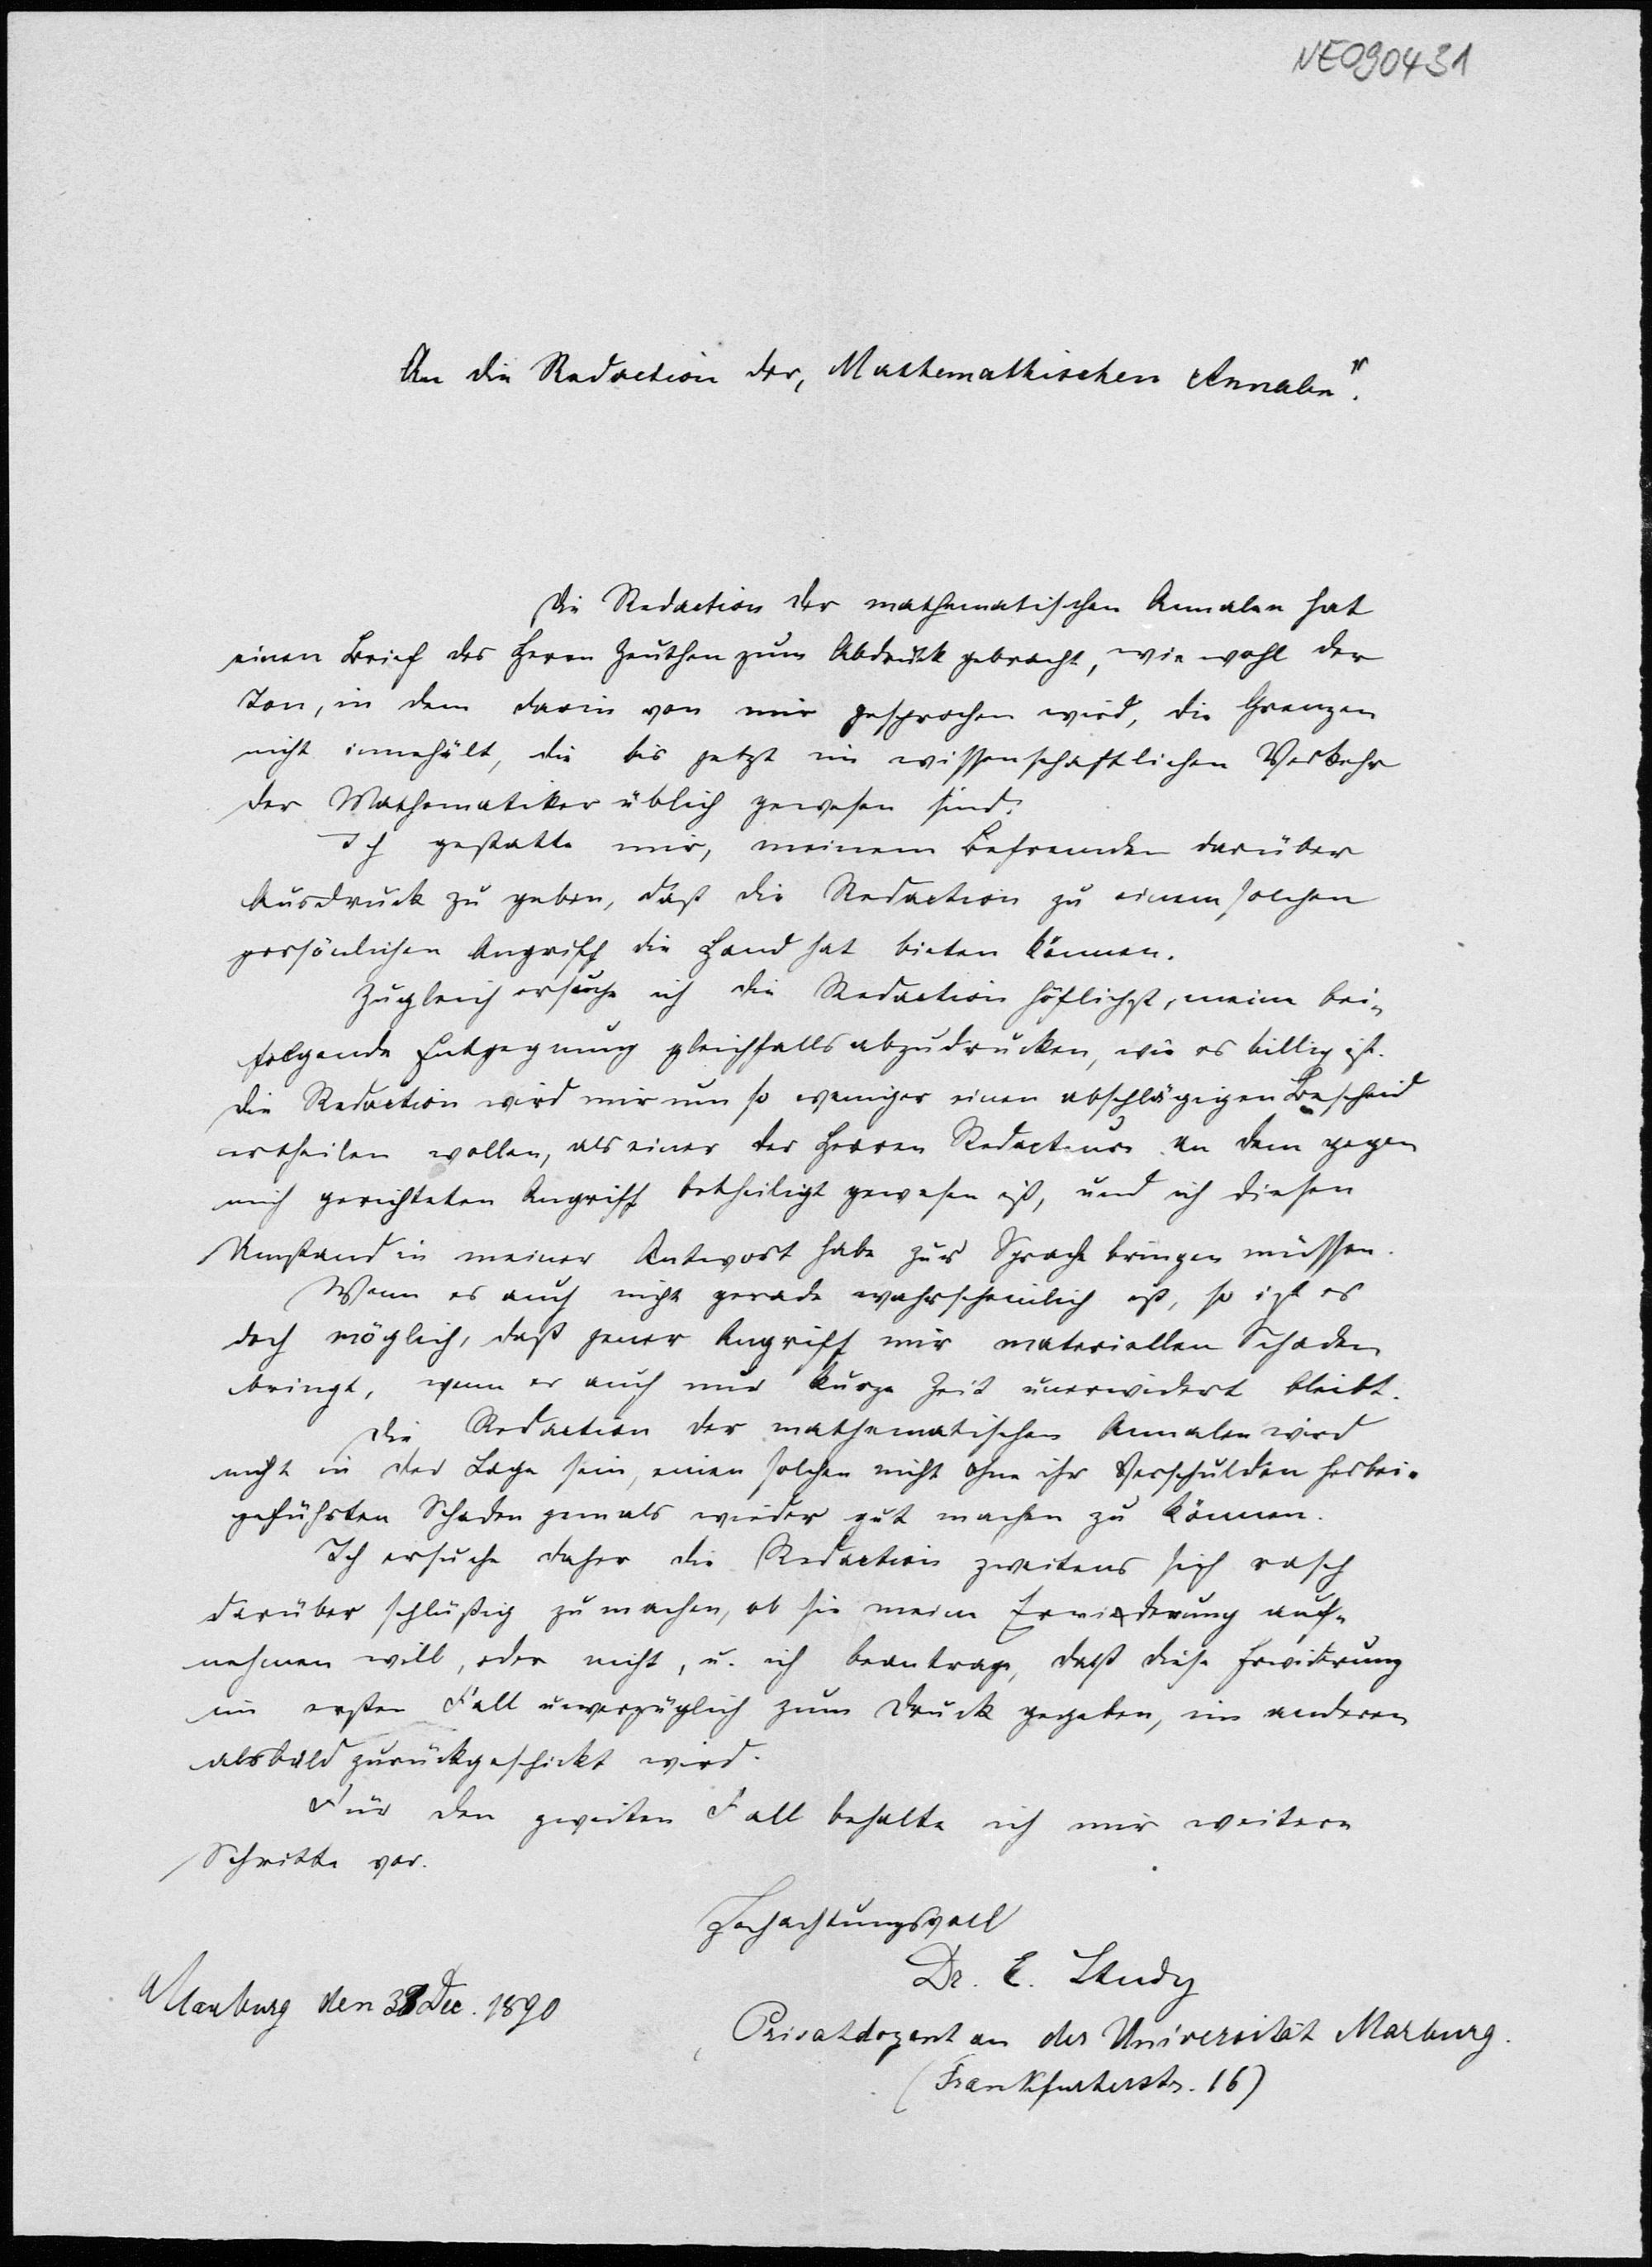 NE090431
An die Redaction der „Mathemathischen Annalen".
Die Redaction der mathematischen Annalen hat
einen Brief des Herrn Zeuthen zum Abdruck gebracht, wie wohl der
Ton, in dem darin von mir gesprochen wird, die Grenzen
nicht innehält, die bis jetzt im wissenschaftlichen Verkehr
der Mathematiker üblich gewesen sind.
Ich gestatte mir, meinem Befremden darüber
Ausdruck zu geben, daß die Redaction zu einem solchen
persönlichen Angriff die Hand hat bieten können.
Zugleich ersuche ich die Redaction höflichst, meine bei-
folgende Entgegnung gleichfalls abzudrucken, wie es billig ist.
Die Redaction wird mir um so weniger einen abschlägigen Bescheid
ertheilen wollen, als einer der Herren Redacteure an dem gegen
mich gerichteten Angriff betheiligt gewesen ist, und ich diesen
Umstand in meiner Antwort habe zur Sprache bringen müssen.
Wenn es auch nicht gerade wahrscheinlich ist, so ist es
doch möglich, daß jener Angriff mir materiellen Schaden
bringt, wenn er auch nur kurze Zeit unerwidert bleibt.
Die Redaction der mathematischen Annalen wird
nicht in der Lage sein, einen solchen nicht ohne ihr Verschulden herbei-
geführten Schaden jemals wieder gut machen zu können.
Ich ersuche daher die Redaction zweitens sich rasch
darüber schlüßig zu machen, ob sie meine Erwiderung auf-
nehmen will, oder nicht, u. ich beantrage, daß diese Erwiderung
im ersten Fall unverzüglich zum Druck gegeben, im anderen
alsbald zurückgeschickt wird.
Für den zweiten Fall behalte ich mir weitere
Schritte vor.
Hochachtungsvoll
Dr. E. Study
Marburg den Dec. 1890
Privatdozent an der Universität Marburg.
(Frankfurterstr. 16)